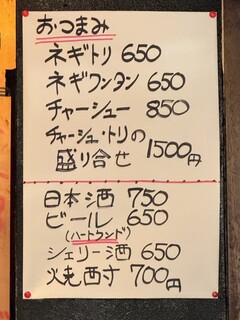 おつまみ
ネギトリ 650
ネギワンタン 650
チャーシュー 850
チャーシュー・トリの
盛り合せ 1500円
日本酒 750
ビール 650
(ハートランド)
シェリー酒 650
火焼酉寸 700円